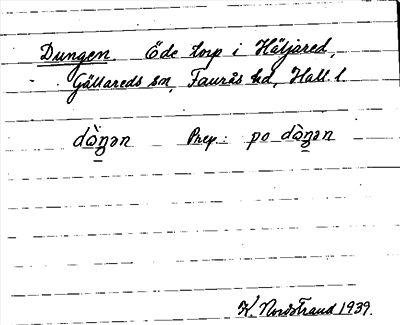 Dungen. Öde torp i Häljared,
Gällareds sn, Faurås hd, Hall. l.
dòŋən Prep.: po dòŋən
K. Nordstrand 1939.